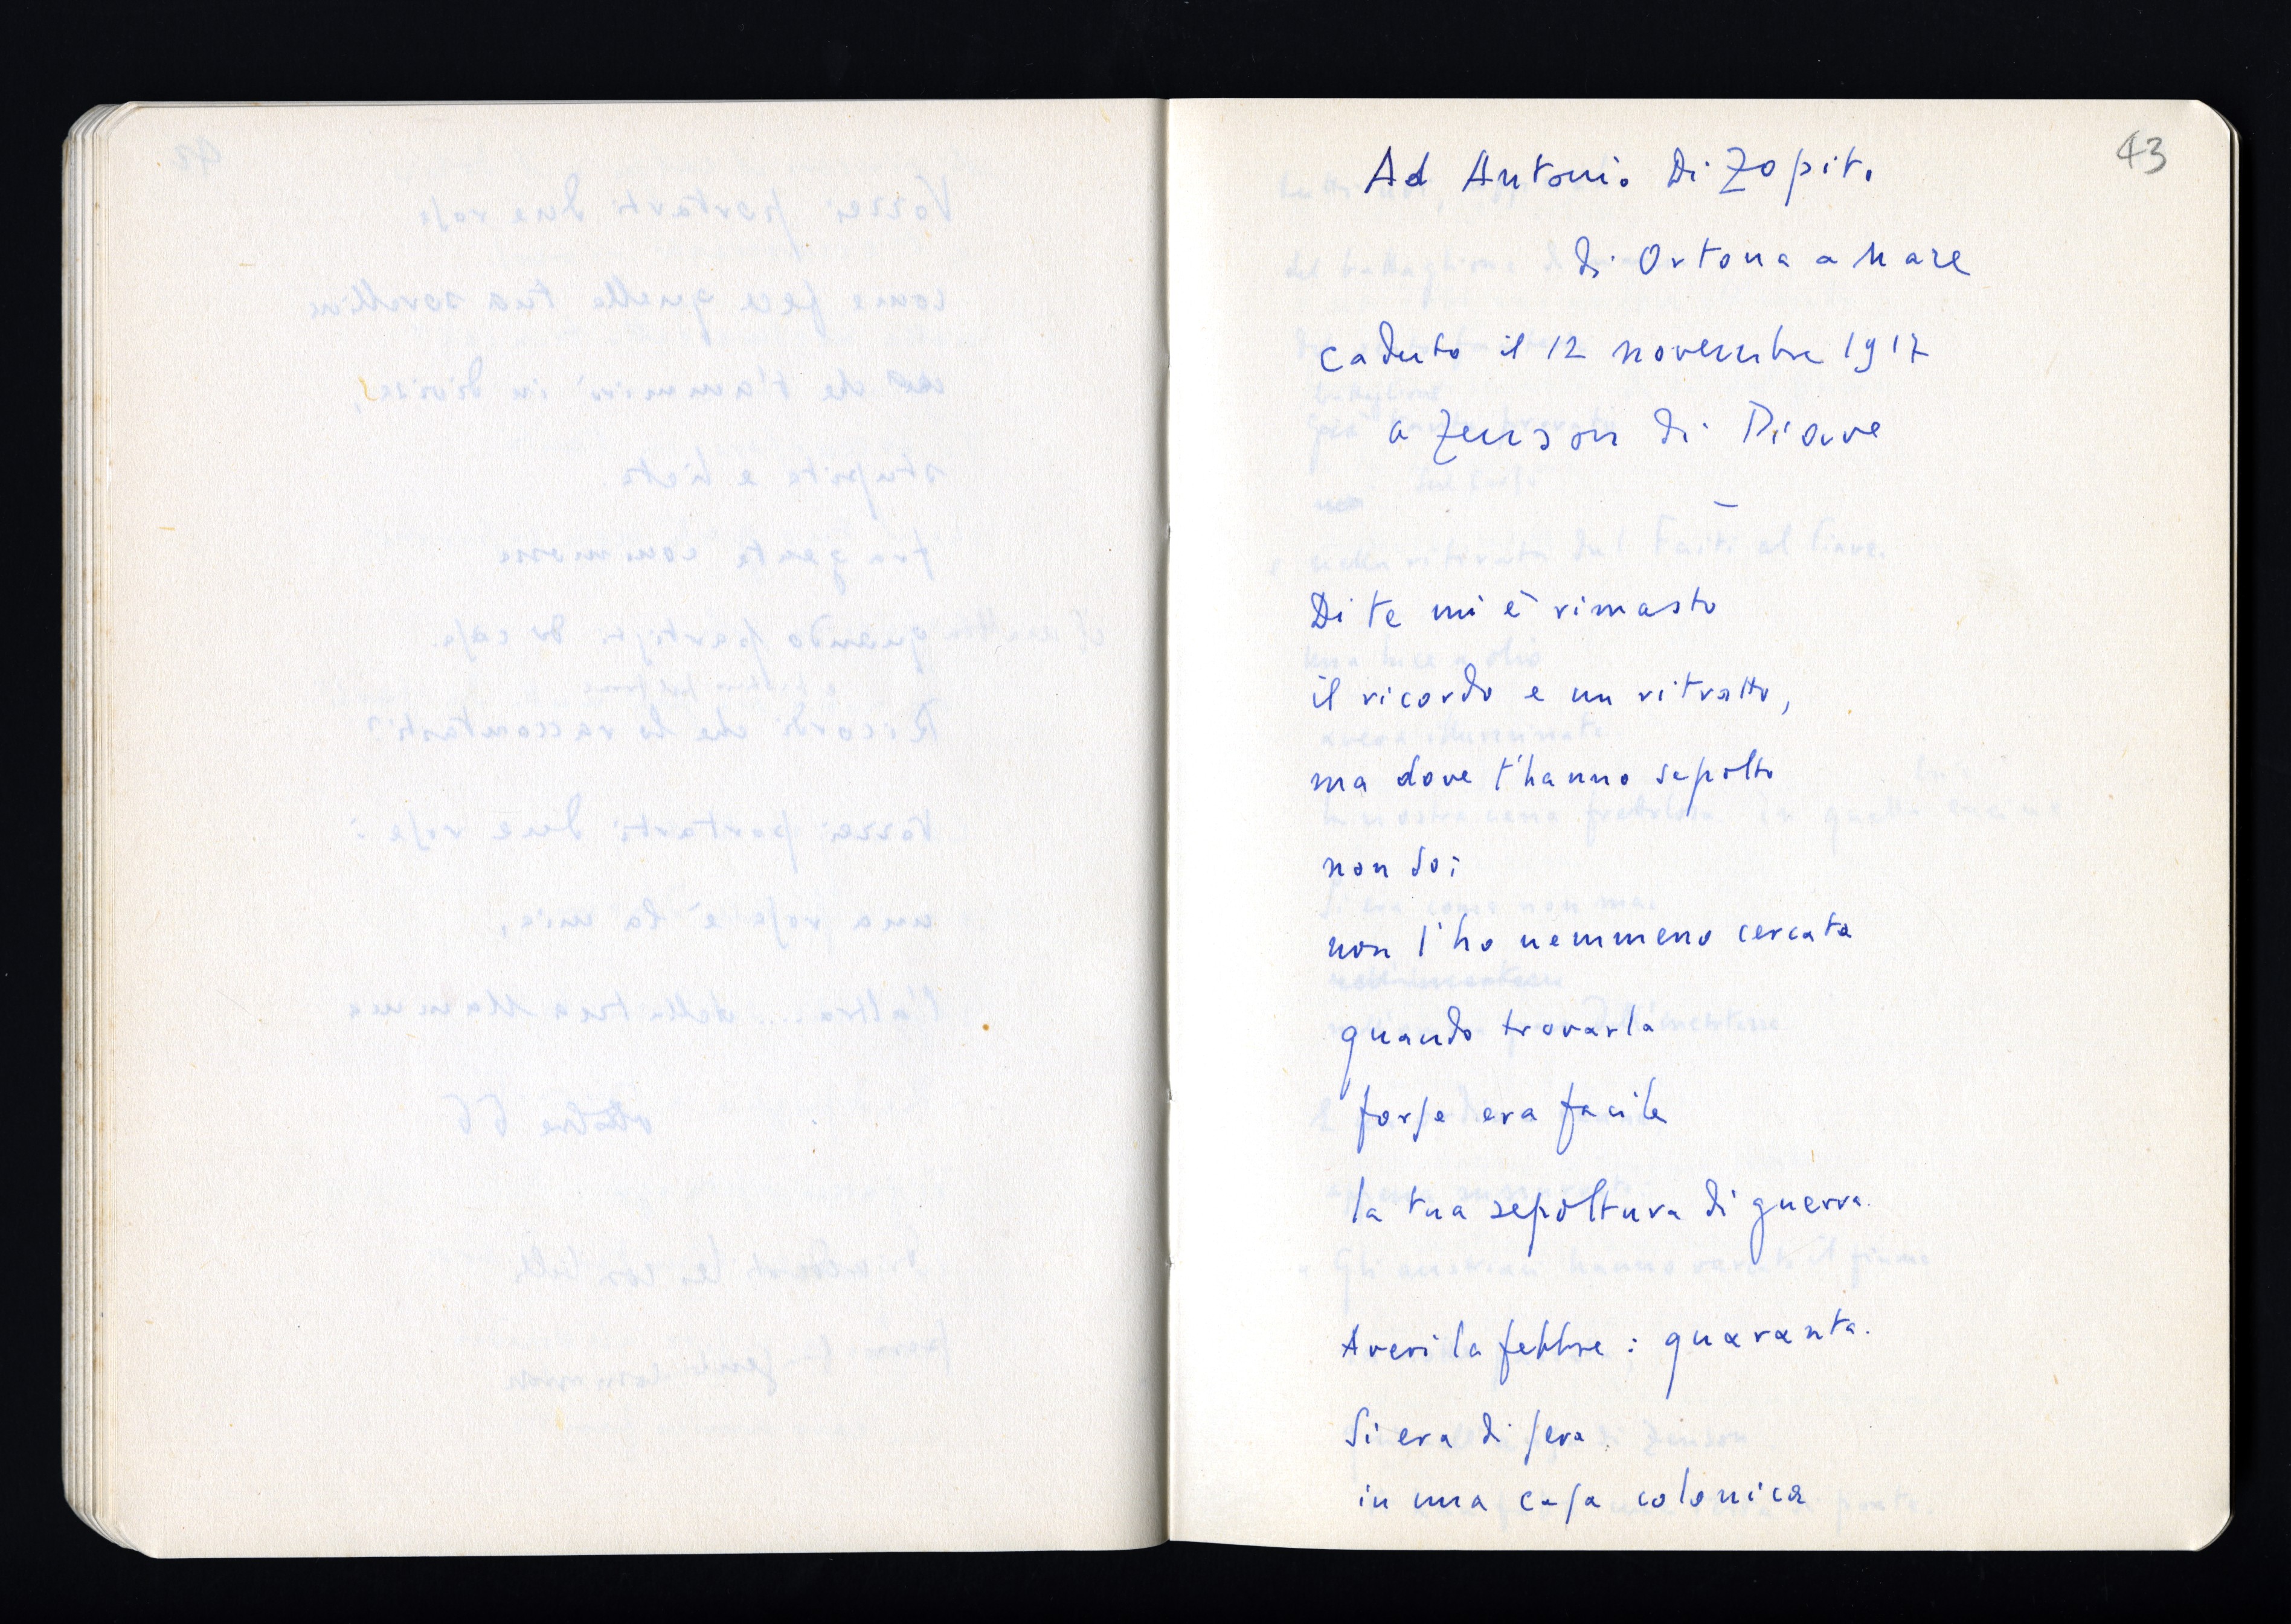 43
Ad Antonio Di Zopito
di Ortona a Mare
caduto il 12 novembre 1917
a Zenson di Piave
–
Di te mi è rimasto
il ricordo e un ritratto,
ma dove t'hanno sepolto
non so;
non l'ho nemmeno cercata
quando trovarla
forse era facile
la tua sepoltura di guerra.
Avevi la febbre : quaranta.
Si era di sera
in una casa colonica